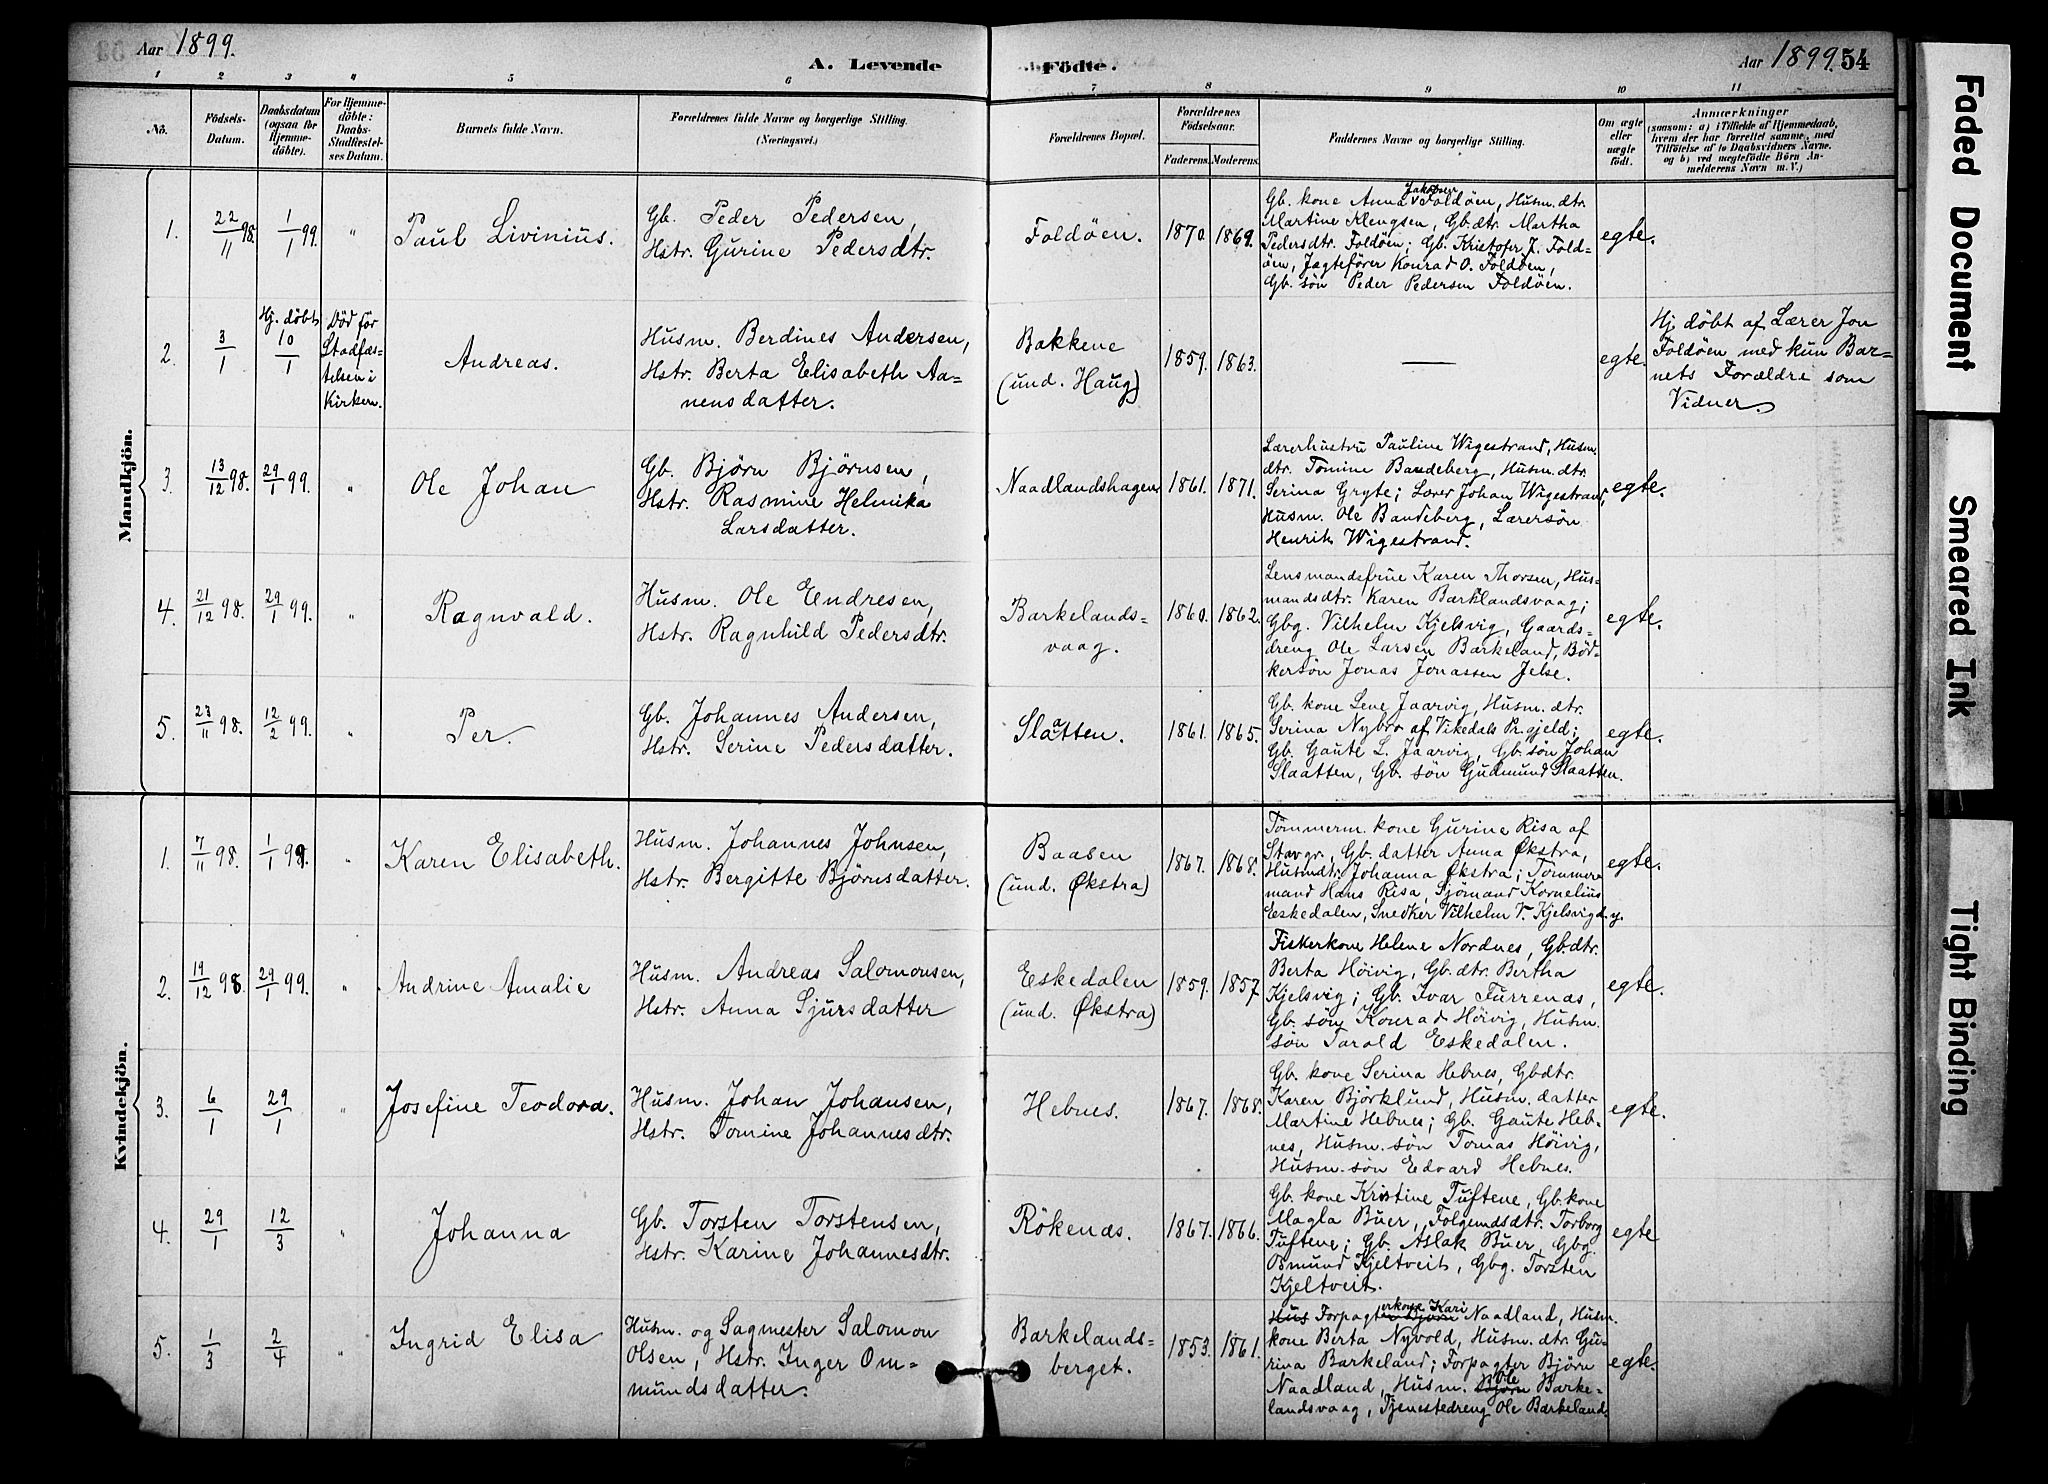 Aar 1899.
A. Levende Födte.
Aar 1899. 54
1 2 3 4 5 6 7 8 9 10 11
No.
Födsels-
Datum.
Daabsdatum
(ogsaa for
Hjemme-
döbte).
For Hjemme-
döbte:
Daabs-
Stadfæstel-
ses Datum.
Barnets fulde Navn.
Forældrenes fulde Navne og borgerlige Stilling.
(Næringsvei.)
Forældrenes Bopæl.
Forældrenes
Födselsaar.
Faderens. Moderens.
Faddernes Navne og borgerlige Stilling.
Om ægte
eller
uægte
födt.
Anmærkninger
(saasom: a) i Tilfælde af Hjemmedaab,
hvem der har forrettet samme, med
Tilföielse af to Daabsvidners Navne,
og b) ved uægtefödte Börn An-
melderens Navn m. V.)
Mandkjön.
1. 22/11 98. 1/1 99. "
Paul Livinius.
Gb. Peder Pedersen,
Hstr. Gurine Pedersdtr.
Foldöen. 1870. 1869.
Gb. kone Anna Jakobsen Foldöen, Husm. dtr.
Martine Klengsen, Gb. dtr. Martha
Pedersdtr. Foldöen; Gb. Kristofer J. Fold-
öen, Jagtefører Konrad O. Foldöen,
Gb. sön Peder Pedersen Foldöen.
egte.
2. 3/1 Hj. döbt 10/1
Död för
Stadfæs-
telsen i
Kirken.
Andreas.
Husm. Berdines Andersen,
Hstr. Berta Elisabeth Aa-
nensdatter.
Bakkene
(und. Haug)
1859. 1863. —
egte.
Hj. döbt af Lærer Jon
Foldöen med kun Bar-
nets Forældre som
Vidner.
3. 13/12 98. 29/1 99. "
Ole Johan
Gb. Björn Björnsen,
Hstr. Rasmine Helmika
Larsdatter.
Naadlandshagen 1861. 1871.
Lærerhustru Pauline Wigestrand, Husm.
dtr. Tomine Bandeberg, Husm. dtr.
Serina Gryte; Lærer Johan Wigestrand,
Husm. Ole Bandeberg, Lærersön
Henrik Wigestrand.
egte.
4. 21/12 98. 29/1 99. "
Ragnvald.
Husm. Ole Endresen,
Hstr. Ragnhild Pedersdtr.
Barkelands-
vaag.
1860. 1862.
Lensmandsfrue Karen Thorsen, Hus-
mandsdtr. Karen Barklandsvaag;
Gbg. Vilhelm Kjelsvig, Gaards-
dreng Ole Larsen Barkeland, Böd-
kersön Jonas Jonassen Jelse.
egte.
5. 23/11 98. 12/2 99. "
Per.
Gb. Johannes Andersen,
Hstr. Serine Pedersdatter.
Slaatten. 1861. 1865.
Gb. kone Lene Jaarvig, Husm. dtr.
Serina Nybro af Vikedals Pr.gjeld;
Gb. Gaute L. Jaarvig, Gb. sön Johan
Slaatten, Gb. sön Gudmund Slaatten.
egte.
Kvindekjön.
1. 7/11 98. 1/1 99. "
Karen Elisabeth.
Husm. Johannes Johnsen,
Hstr. Bergitte Björnsdatter.
Baasen
(und. Økstra)
1867. 1868.
Tömmerm. kone Gurine Risa af
Stavgr., Gb. datter Anna Økstra,
Husmdtr. Johanna Økstra; Tömmer-
mand Hans Risa, Sjömand Kornelius
Eskedalen, Snedker Vilhelm V. Kjelsvig d.y.
egte.
2. 19/12 98. 29/1 99. "
Andrine Amalie
Husm. Andreas Salomonsen,
Hstr. Anna Sjursdatter
Eskedalen
(und. Økstra)
1859. 1857
Fiskerkone Helene Nordnes, Gb. dtr.
Berta Höivig, Gb. dtr. Bertha
Kjelsvig; Gb. Ivar Furrenas,
Gb. sön Konrad Höivig, Husm.
sön Tarald Eskedalen.
egte.
3. 6/1 29/1 "
Josefine Teodora.
Husm. Johan Johansen,
Hstr. Tomine Johannesdtr.
Hebnes. 1867. 1868.
Gb. kone Serina Hebnes, Gbdtr.
Karen Björklund, Husm. datter
Martine Hebnes; Gb. Gaute Heb-
nes, Husm. sön Tomas Höivig,
Husm. sön Edvard Hebnes.
egte.
4. 29/1 12/3 "
Johanna
Gb. Torsten Torstensen,
Hstr. Karine Johannesdtr.
Rökenas. 1867. 1866.
Gb. kone Kristine Tuftene, Gb. kone
Magla Buer, Folgemdsdtr. Torborg
Tuftene; Gb. Aslak Buer, Gbg.
Osmund Kjeltveit, Gbg. Torsten
Kjeltveit.
egte
5. 1/3 2/4 "
Ingrid Elisa
Husm. og Sagmester Salomon
Olsen, Hstr. Inger Om-
mundsdatter.
Barkelands-
berget.
1853. 1861.
Hus Forpagterkone Kari Naadland, Husm.
kone Berta Nyvold, Husm. dtr. Gu-
rina Barkeland; Forpagter Björn
Naadland, Husm. Björn Ole Barke-
landsvaag, Tjenestedreng Ole Barkeland.
egte.
Faded Document
Smeared Ink
Tight Binding